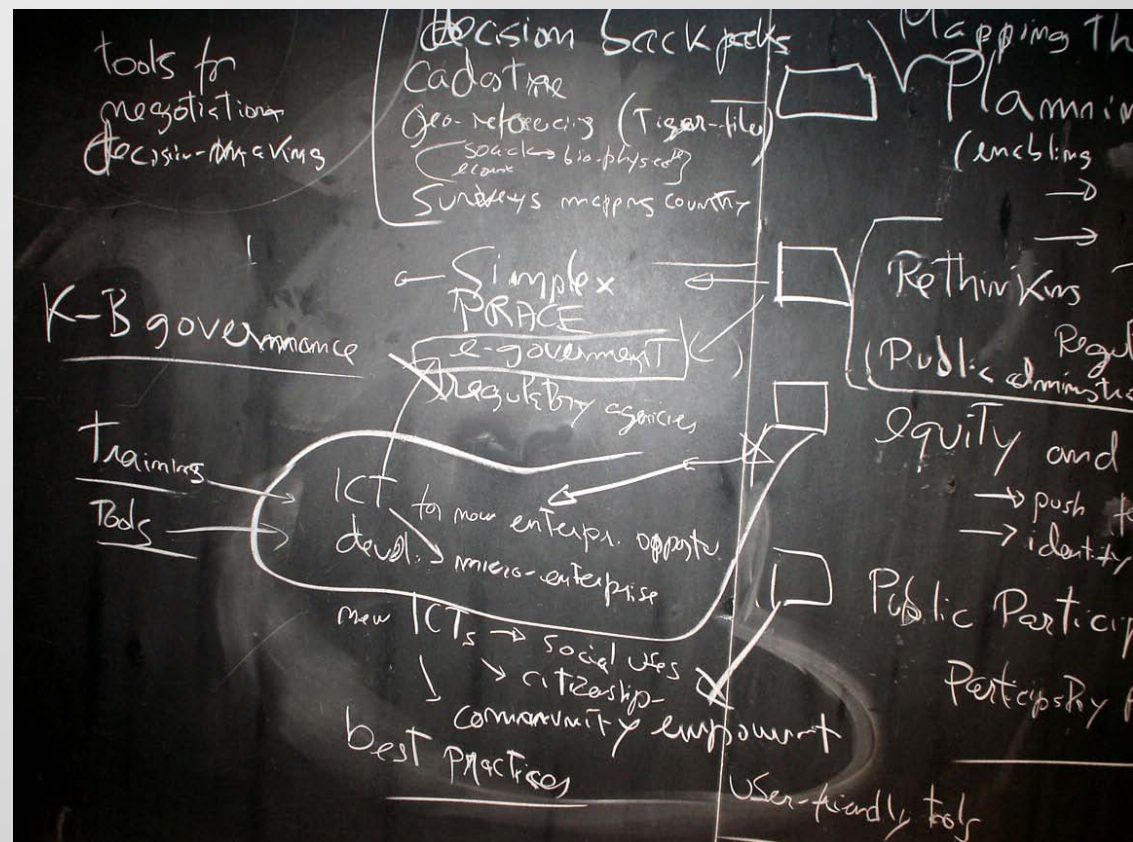 tools for
negotiation
decision-making
decision backpacks
Cadastre
geo-referencing (Tiger-file)
social → bio-physical
econ
Surveys mapping country
← Simplex ←
PRACE
e-goverment
regulatory agencies
K-B governance
Training
Tools
ICT for new enterpr. opportu.
devel. micro-enterprise
new ICTs → social uses
citizenship
community empowerment
best practices
user-friendly tools
Mapping Th
Plannin
(enabling
→
→
Rethinking
Regul
Public administra
equity and
→ push
→ identity
Public Particip